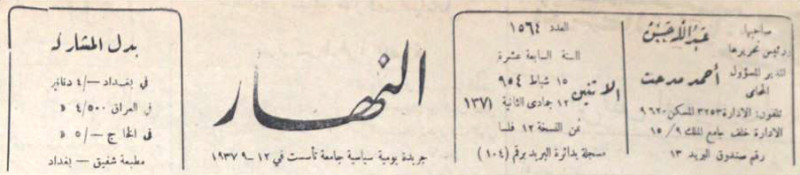 صاحبها
ورئيس تحريرها
عبد الله حسن
المدير المسؤول
المحامي
أحمد مدحت
تلفون: الادارة ٣٢٥٣ المسكن ٩٦٢٠
الادارة خلف جامع الملك ٩ / ١٥
رقم صندوق البريد ١٣
العدد ١٥٦٤
السنة السابعة عشرة
الاثنين
١٥ شباط ٩٥٤
١٢ جمادى الثانية ١٣٧١
ثمن النسخة ١٢ فلسا
مسجلة بدائرة البريد برقم (١٠٤)
النهار
جريدة يومية سياسية جامعة تأسست في ١٢ -٩ ١٩٣٧
بدل المشاركة
في بغداد —/٤ دنانير
في العراق ٤/٥٠٠ »
في الخارج —/٥ »
مطبعة شفيق - بغداد